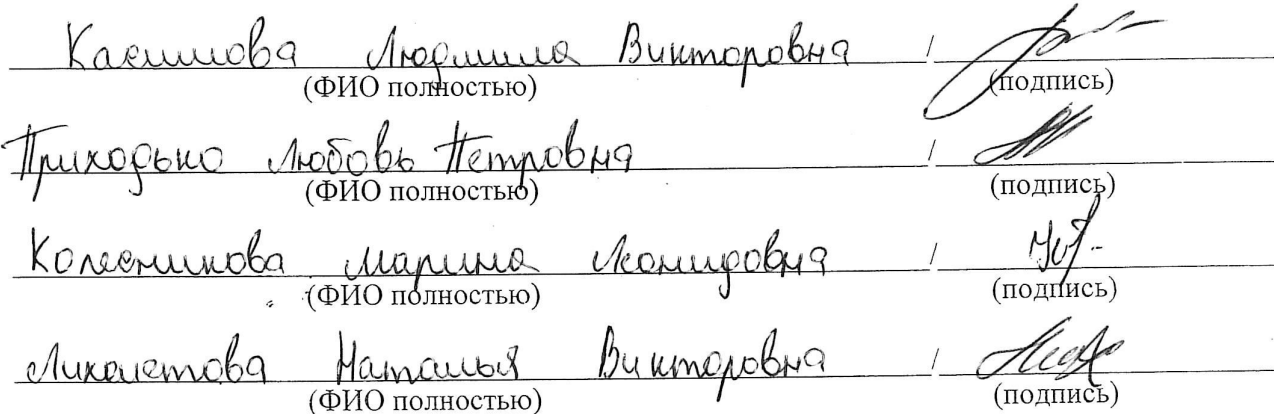 Касимова Людмила Викторовна /
(ФИО полностью) (подпись)
Приходько Любовь Петровна /
(ФИО полностью) (подпись)
Колесникова Марина Леонидовна /
(ФИО полностью) (подпись)
Лихолетова Наталья Викторовна /
(ФИО полностью) (подпись)